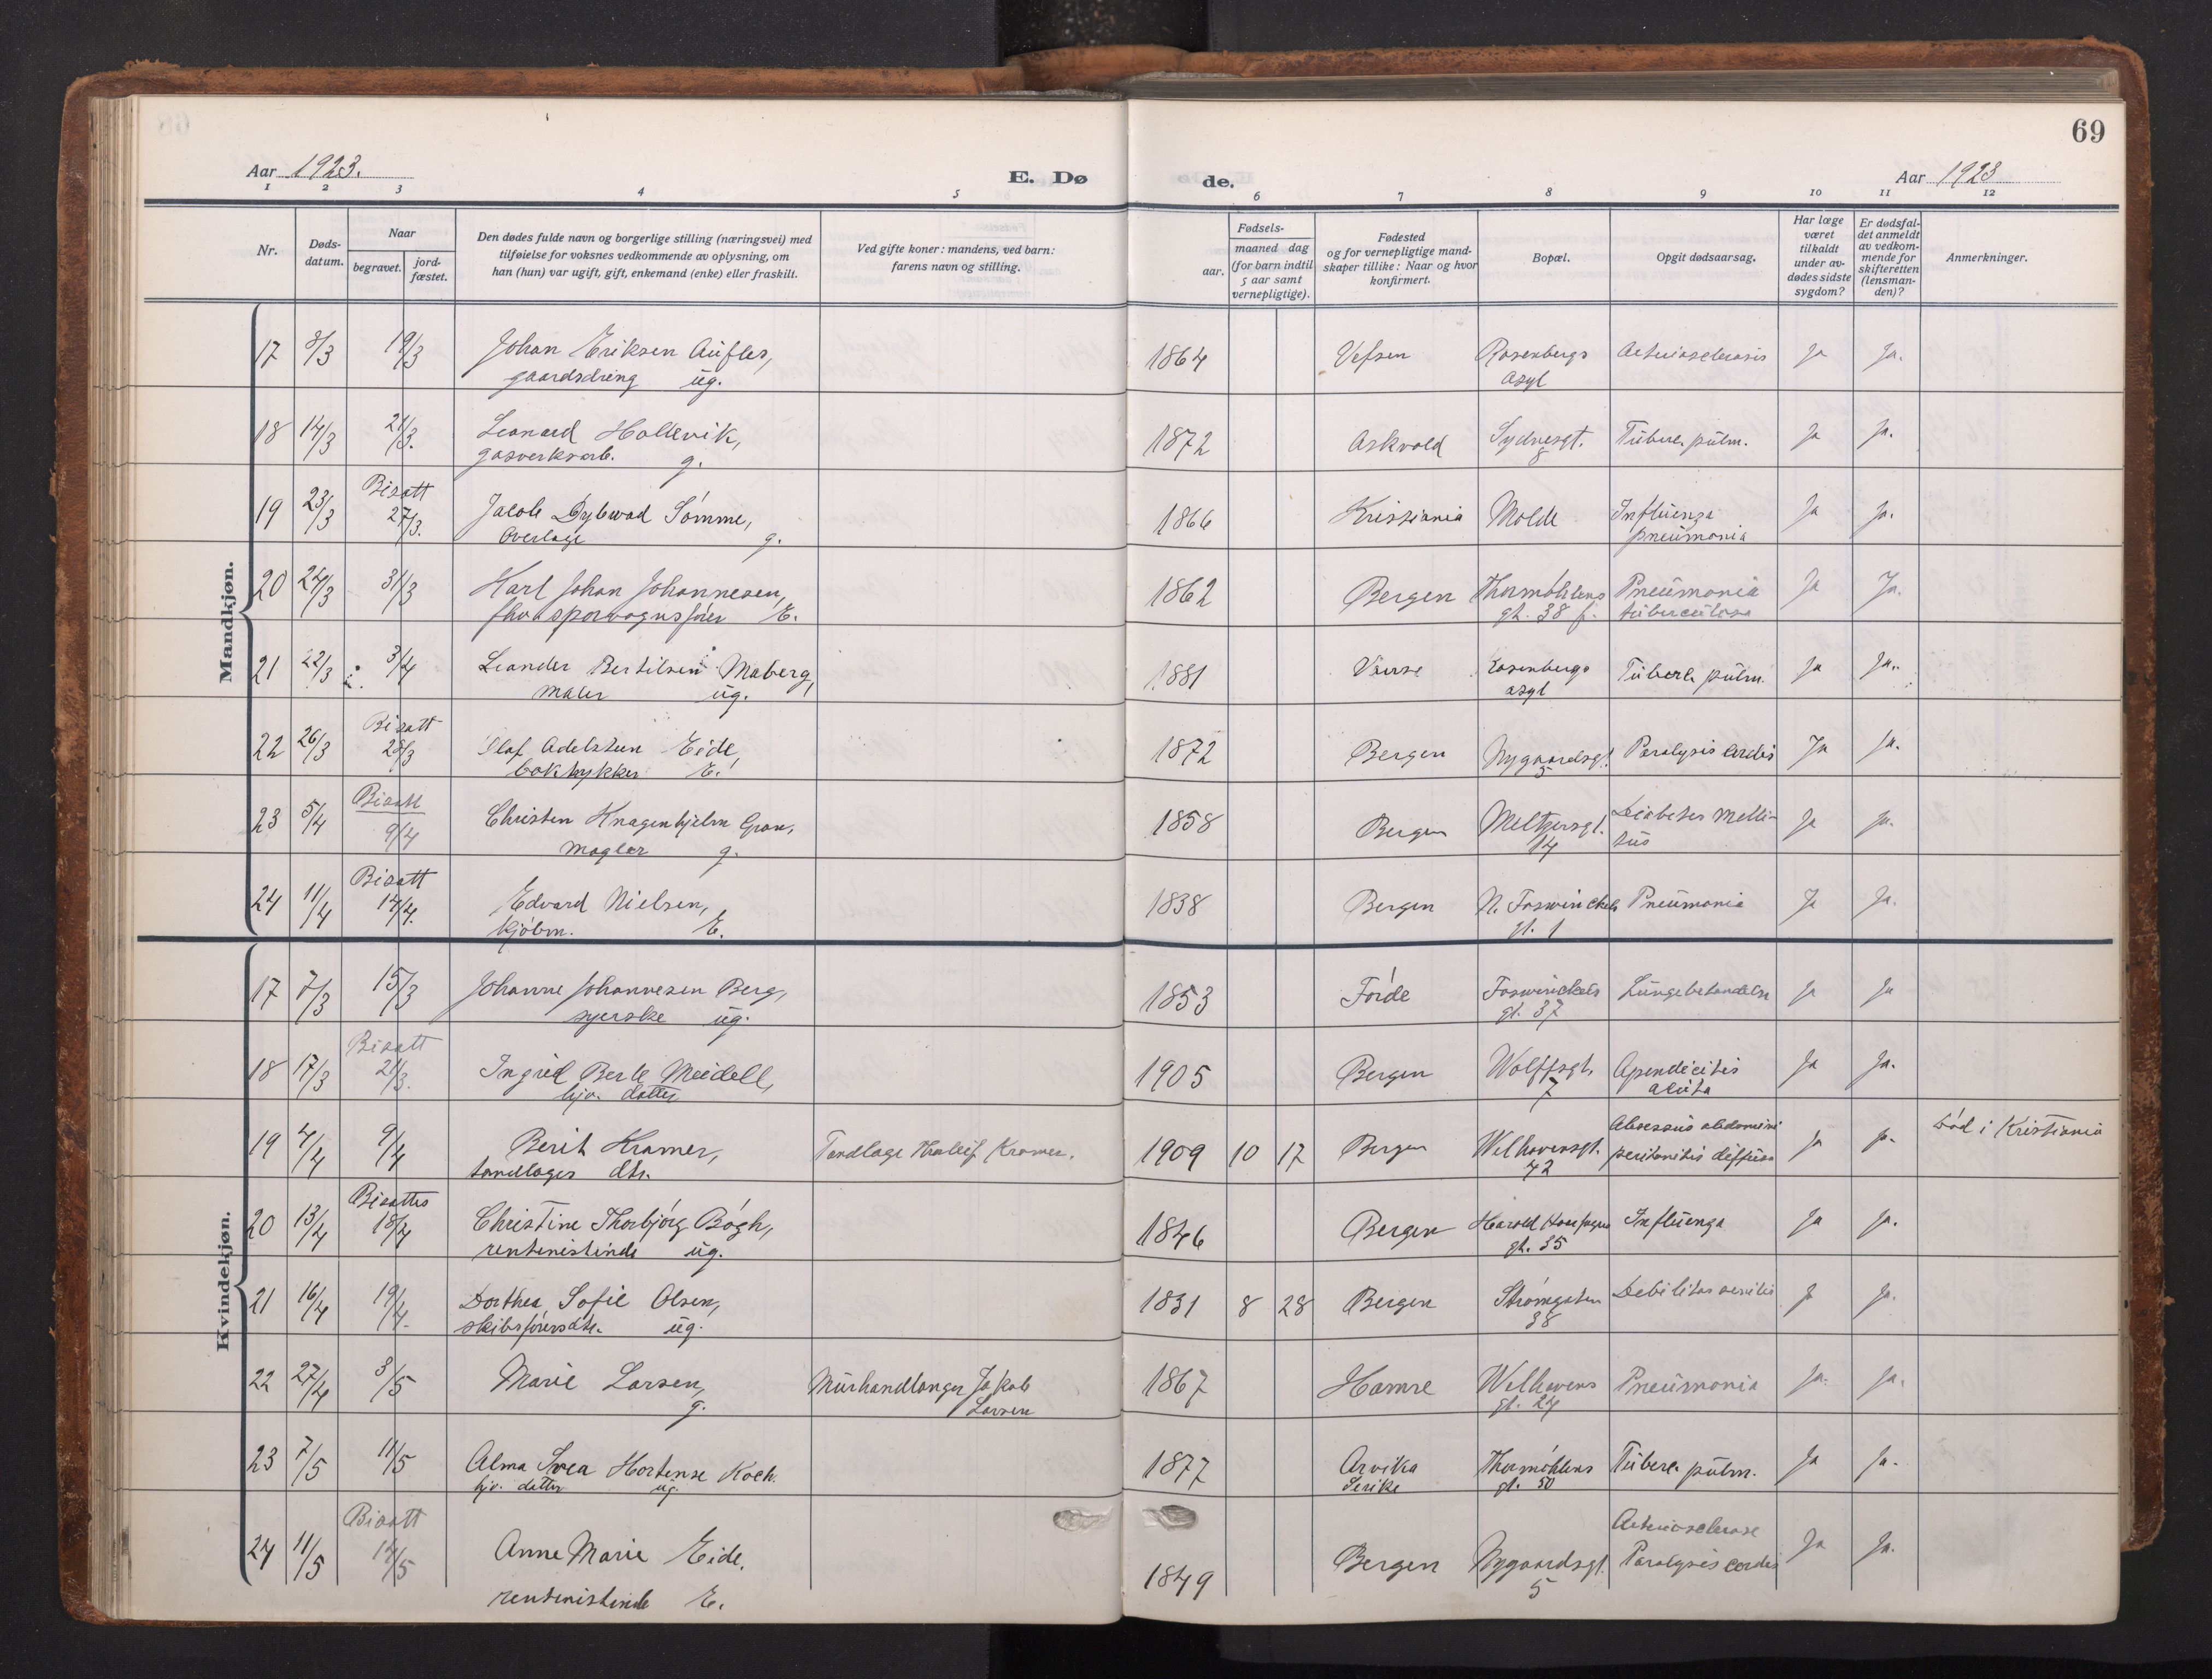 69
Aar 1923.
E. Dø
de.
Aar 1923
1 2 3 4 5 6 7 8 9 10 11 12
Nr.
Døds-
datum.
Naar
begravet.
jord-
fæstet.
Den dødes fulde navn og borgerlige stilling (næringsvei) med
tilføielse for voksnes vedkommende av oplysning, om
han (hun) var ugift, gift, enkemand (enke) eller fraskilt.
Ved gifte koner: mandens, ved barn:
farens navn og stilling.
Fødsels-
aar.
maaned dag
(for barn indtil
5 aar samt
vernepligtige).
Fødested
og for vernepligtige mand-
skaper tillike: Naar og hvor
konfirmert.
Bopæl.
Opgit dødsaarsag.
Har læge
været
tilkaldt
under av-
dødes sidste
sygdom?
Er dødsfal-
det anmeldt
av vedkom-
mende for
skifteretten
(lensman-
den)?
Anmerkninger.
Mandkjøn.
17 8/3 19/3 Johan Eriksen Aufles, 1864 Vefsen Rosenbergs Arteriosclerosis Ja Ja.
gaardsdreng ug. asyl
18 14/3 21/3. Leonard Hallevik, 1872 Askvold Sydnesgt. Tuberc. pulm. Ja Ja.
gasverksarb. g. 8
Bisatt
19 23/3 27/3. Jacob Dybwad Sømme, 1866 Kristiania Molde Influenza Ja Ja.
Overlæge g. pneumonia
20 24/3 31/3 Karl Johan Johannesen, 1862 Bergen Thormøhlens Pneumonia Ja Ja.
fhv. sporvognsfører E. gt. 38 tuberculosa
21 22/3 3/4 Leander Bertilsen Moberg, 1881 Rosenbergs Tuberc. pulm. Ja Ja.
maler ug. asyl
Bisatt
22 26/3 28/3 Olaf Adelsteen Eide, 1872 Bergen Nygaardsgt. Paralysis cordis Ja Ja.
boktrykker E. 5
Bisatt
23 5/4 9/4 Christen Knagenhjelm Gran, 1858 Bergen Meltzersgt. Diabetes melli- Ja Ja.
mægler g. 14 tus
Bisatt
24 11/4 14/4. Edvard Nielsen, 1838 Bergen N. Foswinckels Pneumonia Ja Ja.
kjøbm. E. gt. 1
Kvindekjøn.
17 7/3 15/3 Johanne Johannesen Berg, 1853 Førde Foswinckels Lungebetændelse Ja Ja
syerske ug. gt. 37
Bisatt
18 17/3 21/3. Ingrid Berle Meidell, 1905 Bergen Wolffsgt. Apendicitis Ja Ja.
hjv. datter 7 acuta
19 4/4 9/4 Berit Kramer, Tandlæge Kramer. 1909 10 17 Bergen Welhavensgt. Abcessus abdomini Ja Ja. Død i Kristiania
tandlæges dtr. 42 peritonitis diffusa
Bisattes
20 13/4 18/4 Christine Thorbjørg Bøgh, 1846 Bergen Harald Haarfagres Influenza Ja Ja.
rentenistinde ug. gt. 35
21 16/4 19/4. Dorthea Sofie Olsen, 1831 8 28 Bergen Strømgaten Debilitas senilis Ja Ja.
skibsførersdtr. ug. 38
22 27/4 3/5 Marie Larsen, Murhandlanger Jakob 1867 Hamre Welhavens Pneumonia Ja. Ja.
g. Larsen gt. 24
23 7/5 11/5 Alma Svea Hortense Koch. 1877 Arvika Thormøhlens Tuberc. pulm. Ja Ja.
hjv. datter ug. gt. 50
Bisatt Arteriosclerose
24 11/5 14/5 Anne Marie Eide. 1849 Bergen Nygaardsgt. Paralysis cordis Ja Ja.
rentenistinde E. 5